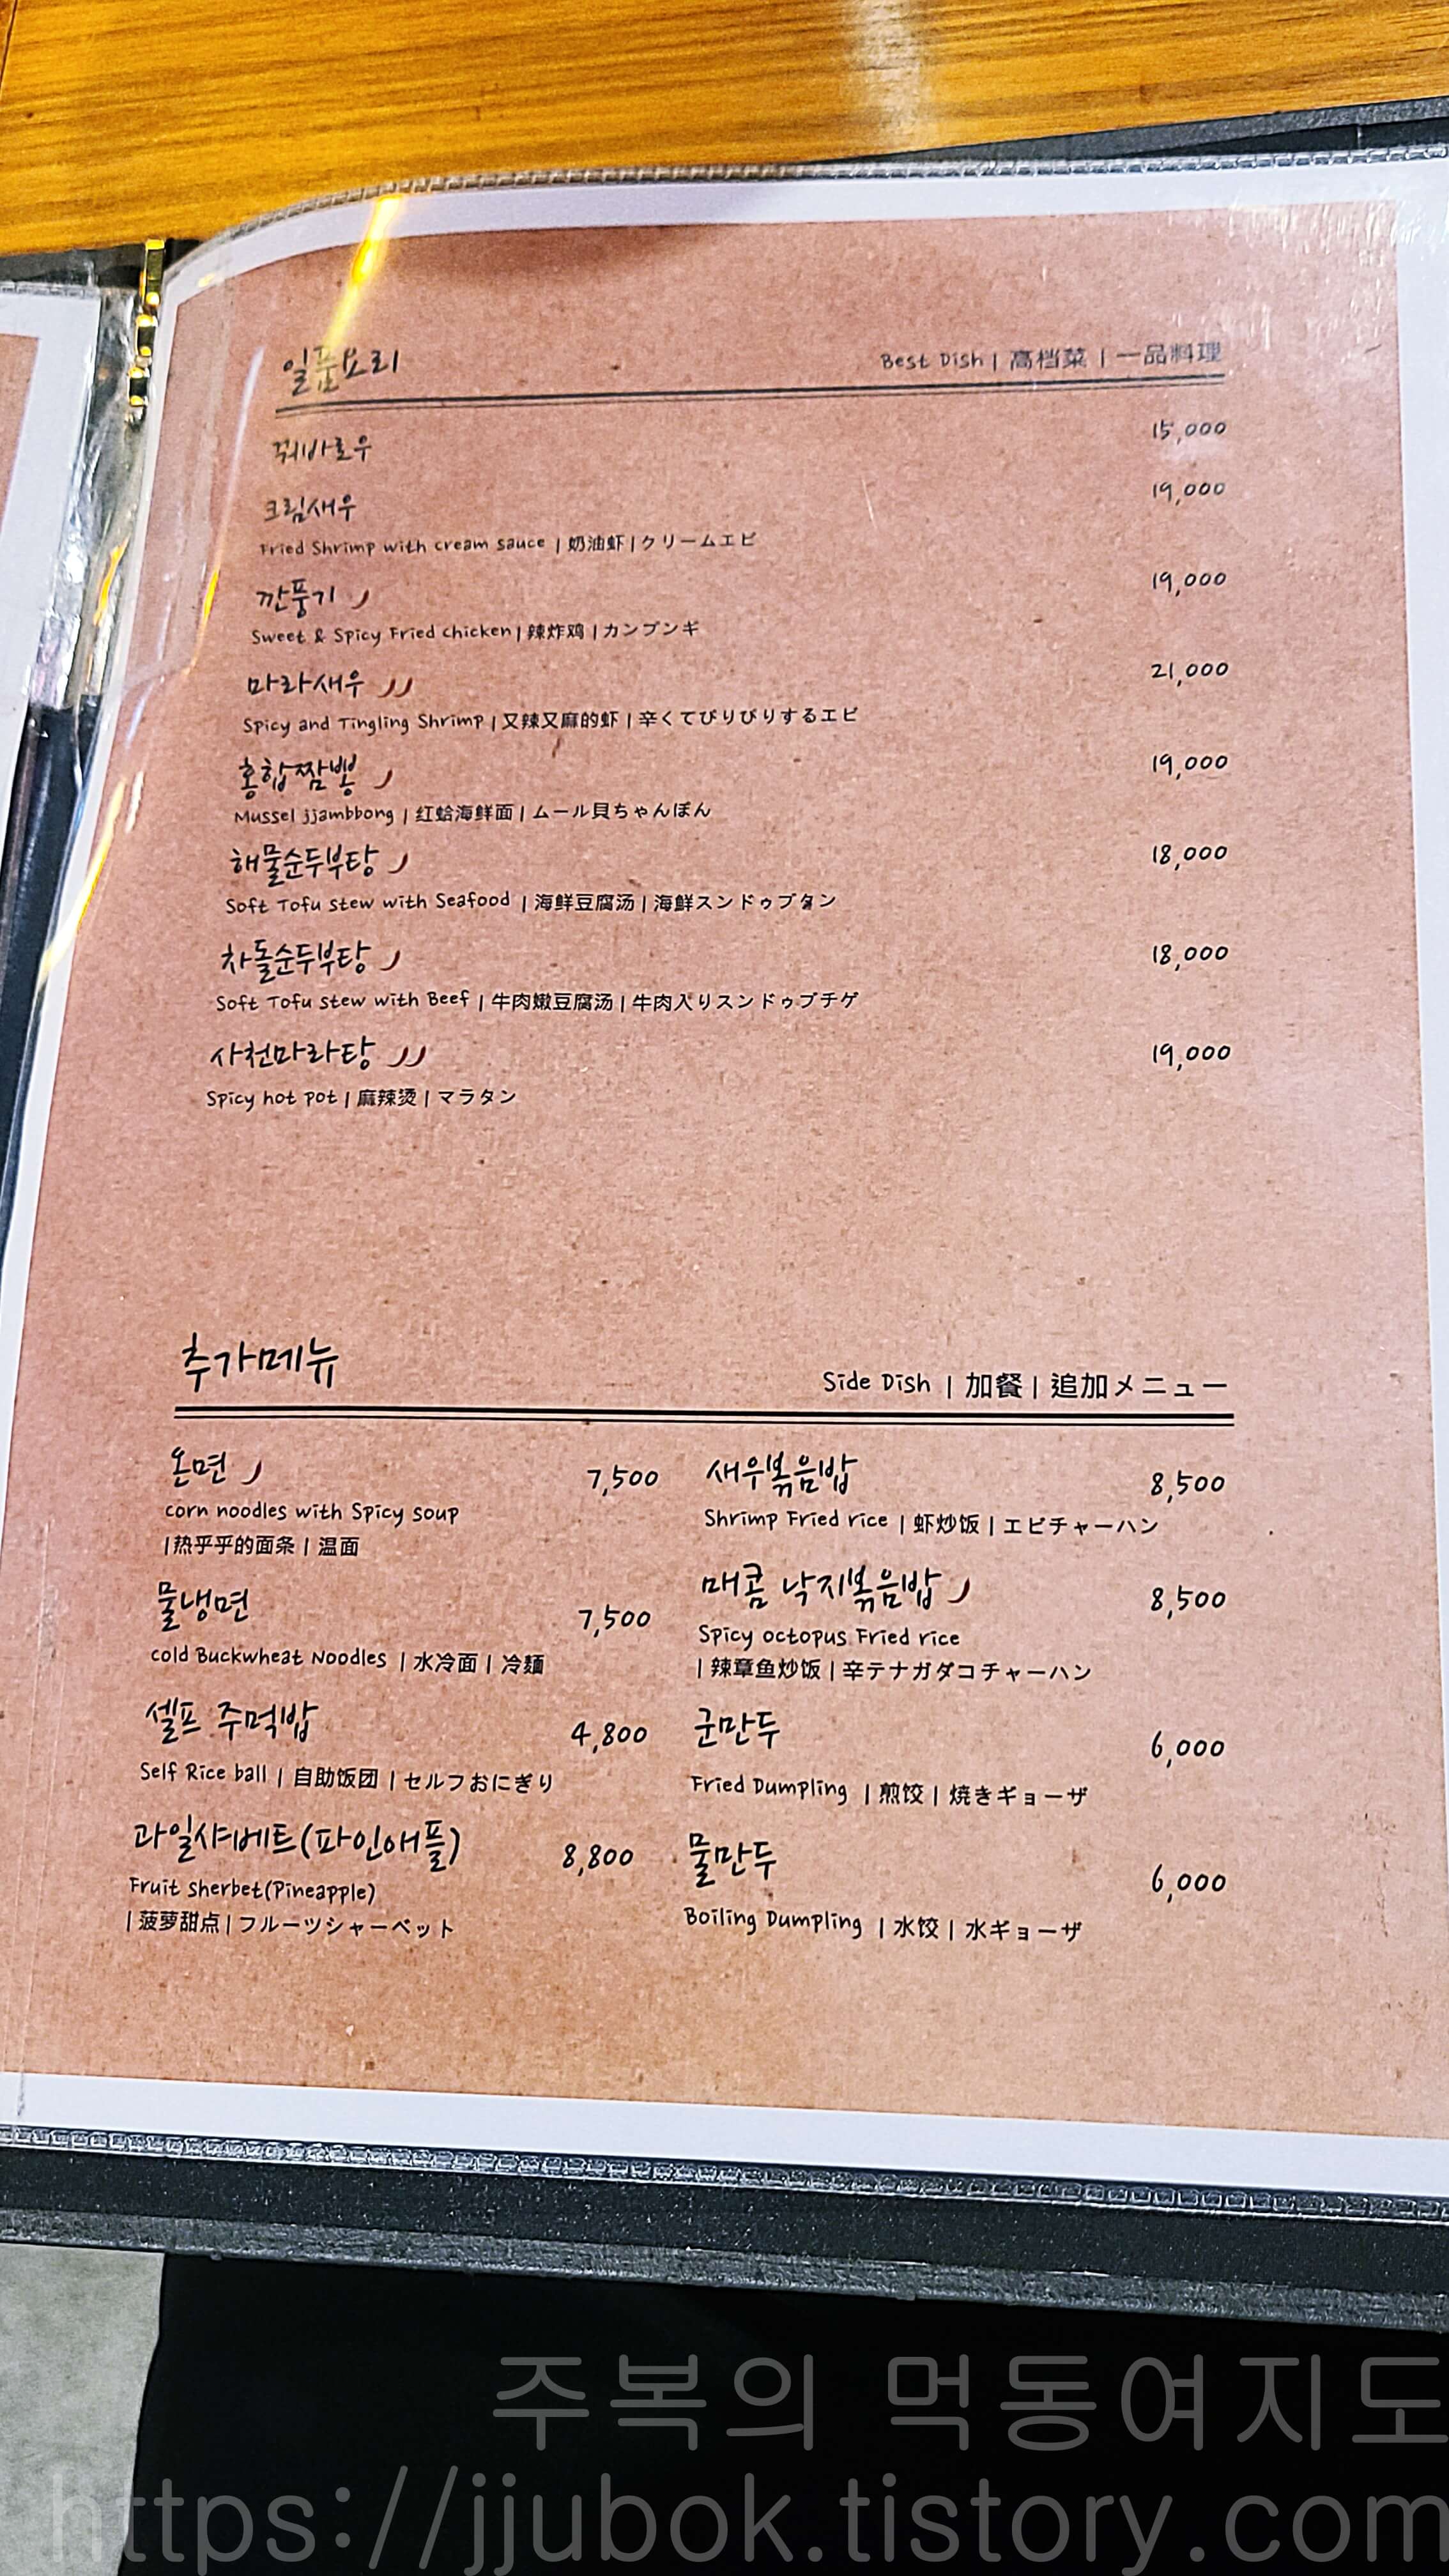 일품요리
Best Dish | 高档菜 | 一品料理
꿔바로우 15,000
크림새우 19,000
Fried Shrimp with cream sauce | 奶油虾 | クリームエビ
깐풍기 19,000
Sweet & Spicy Fried chicken | 辣炸鸡 | カンプンギ
마라새우 21,000
Spicy and Tingling Shrimp | 又辣又麻的虾 | 辛くてぴりぴりするエビ
홍합짬뽕 19,000
Mussel jjambbong | 红蛤海鲜面 | ムール貝ちゃんぽん
해물순두부탕 18,000
Soft Tofu stew with Seafood | 海鲜豆腐汤 | 海鮮スンドゥブタン
차돌순두부탕 18,000
Soft Tofu stew with Beef | 牛肉嫩豆腐汤 | 牛肉入りスンドゥブチゲ
사천마라탕 19,000
Spicy hot pot | 麻辣烫 | マラタン
추가메뉴
Side Dish | 加餐 | 追加メニュー
온면 7,500
corn noodles with Spicy soup
| 热乎乎的面条 | 温面
물냉면 7,500
cold Buckwheat Noodles | 水冷面 | 冷麺
셀프 주먹밥 4,800
Self Rice ball | 自助饭团 | セルフおにぎり
과일샤베트(파인애플) 8,800
Fruit sherbet(Pineapple)
| 菠萝甜点 | フルーツシャーベット
새우볶음밥 8,500
Shrimp Fried rice | 虾炒饭 | エビチャーハン
매콤 낙지볶음밥 8,500
Spicy octopus Fried rice
| 辣章鱼炒饭 | 辛テナガダコチャーハン
군만두 6,000
Fried Dumpling | 煎饺 | 焼きギョーザ
물만두 6,000
Boiling Dumpling | 水饺 | 水ギョーザ
주복의 먹동여지도
https://jjubok.tistory.com